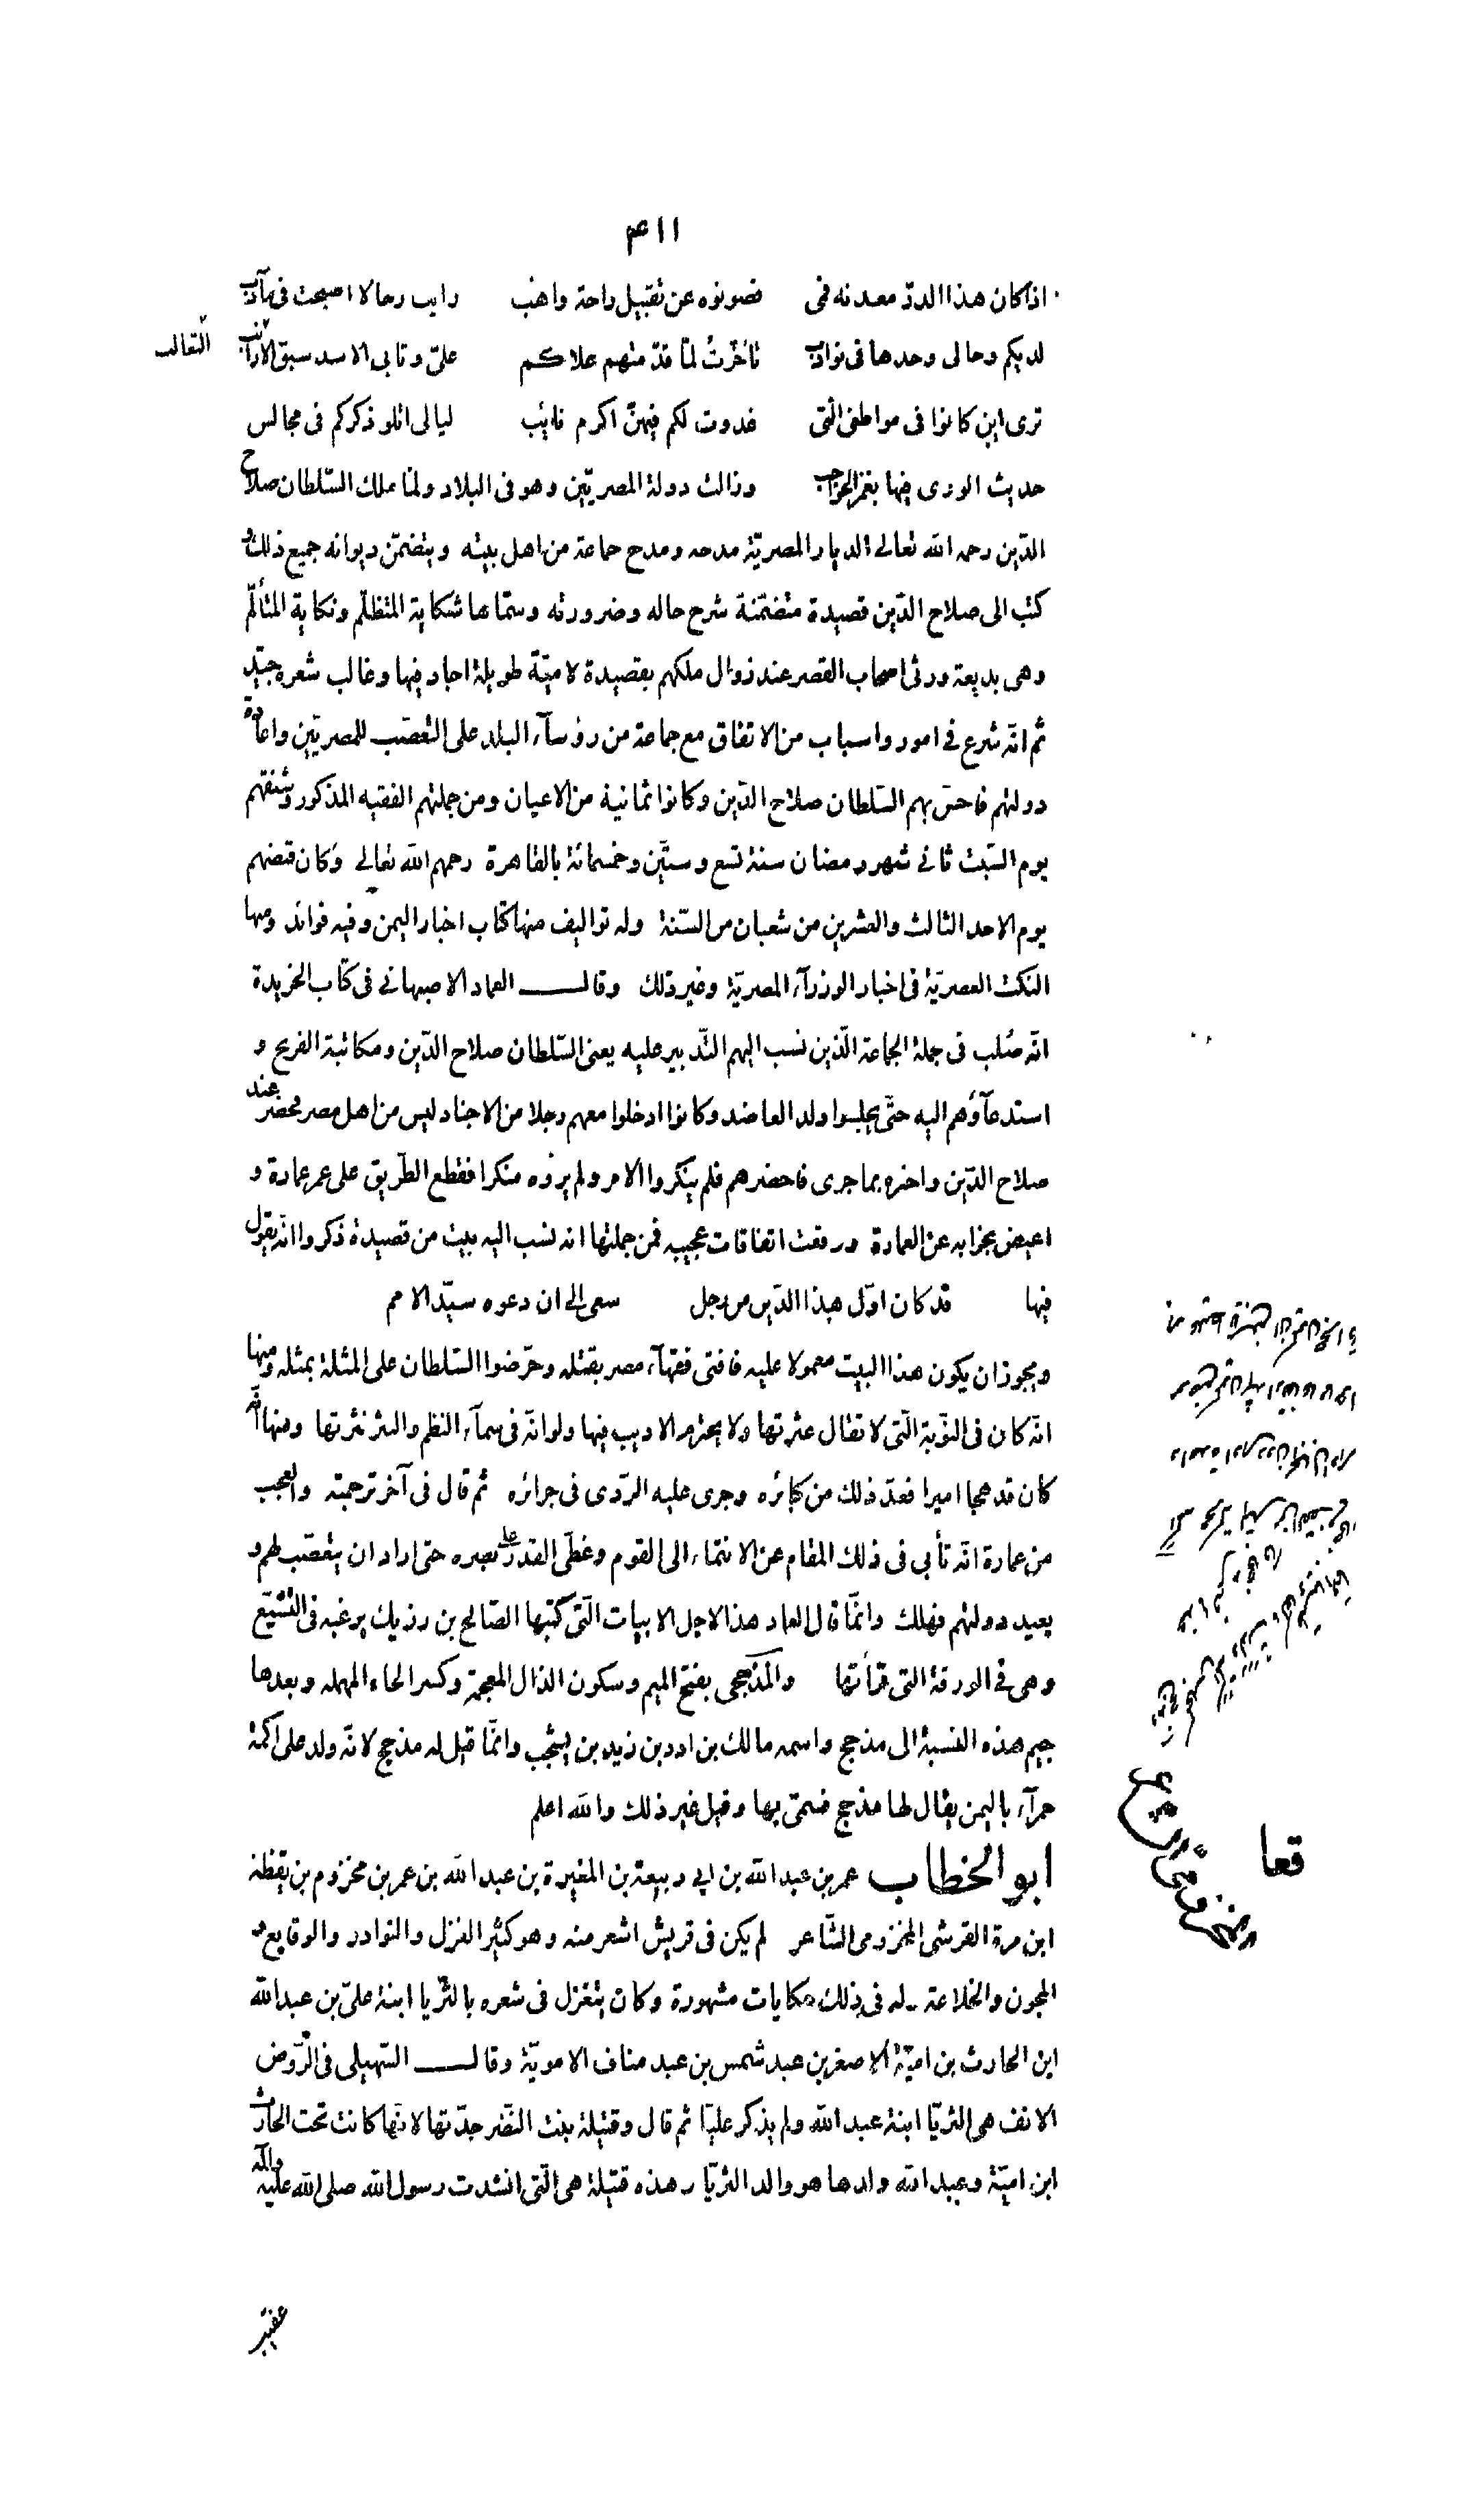 ٤١١
اذا كان هذا الدرّ معدنه فمى فصونوه عن تقبيل راحة واهب رايت رجالا اصبحت فى مآدب
لديكم وحالى وحدها فى نوادب تأخّرتُ لمّا قدّمتهم علاكم علىّ وتابى الاسد سبق الارانب
الثعالب
ترى اين كانوا فى مواطنى الّتى غدوت لكم فيهنّ اكرم نائب ليالى اتلو ذكركم فى مجالس
حديث الورى فيها بغمز الحواجب وزالت دولة المصريّين وهو فى البلاد ولمّا ملك السّلطان صلاح
الدّين رحمه الله تعالى الديار المصريّة مدحه ومدح جماعة من اهل بيته ويتضمّن ديوانه جميع ذلك و
كتب الى صلاح الدّين قصيدة متضمّنة شرح حاله وضرورته وسمّاها شكاية المتظلّم ونكاية المتألّم
وهى بديعة ورثى اصحاب القصر عند زوال ملكهم بقصيدة لاميّة طويلة اجاد فيها وغالب شعره جيّد
ثم انّه شرع فى امور واسباب من الاتفاق مع جماعة من رؤسآء البلد على التعصّب للمصريّين واعادة
دولتهم فاحسّ بهم السّلطان صلاح الدّين وكانوا ثمانية من الاعيان ومن جملتهم الفقيه المذكور وشنقهم
يوم السّبت ثانى شهر رمضان سنة تسع وستّين وخمسمائة بالقاهرة رحمهم الله تعالى وكان قبضهم
يوم الاحد الثالث والعشرين من شعبان من السّنة وله تواليف منها كتاب اخبار اليمن وفيه فوائد ومنها
النّكت العصريّة فى اخبار الوزرآء المصريّة وغير ذلك وقال العماد الاصبهانى فى كتاب الخريدة
انّه صُلب فى جملة الجماعة الّذين نسب اليهم التّدبير عليه يعنى السّلطان صلاح الدّين ومكاتبة الفرنج و
استدعآؤهم اليه حتّى يجلسوا ولد العاضد وكانوا ادخلوا معهم رجلا من الاجناد ليس من اهل مصر فحضر عند
صلاح الدّين واخبره بما جرى فاحضرهم فلم ينكروا الامر ولم يروه منكرا فقطع الطّريق على عمر عمارة و
اعيض بخرابه عن العمارة ووقعت اتفاقات عجيبه فمن جملتها انه نسب اليه بيت من قصيدة ذكروا انّه يقول
فيها قد كان اوّل هذا الدّين من رجل سعى الى ان دعوه سيّد الامم
ويجوز ان يكون هذا البيت معمولا عليه فافتى فقهآء مصر بقتله وحرّضوا السّلطان على المثلة بمثله ومنها
انّه كان فى النّوبة الّتى لا تقال عثرتها ولا يحترم الاديب فيها ولو انّه فى سمآء النظم والنثر نثرتها ومنها انّه
كان قد هجا اميرا فعدّ ذلك من كبائره وجرى عليه الرّدى فى جرائره ثم قال فى آخر ترجمته والعجب
من عمارة انّه تأبى فى ذلك المقام عن الانتماء الى القوم وغطّى القدر على بصره حتى اراد ان يتعصّب لهم و
يعيد دولتهم فهلك وانّما قال العماد هذا لاجل الابيات الّتى كتبها الصّالح بن رزيك يرغبه فى التشيّع
وهى فى الورقة التى قرأتها والمذحجى بفتح الميم وسكون الذال المعجمة وكسر الحاء المهمله وبعدها
جيم هذه النسبة الى مذحج واسمه مالك بن ادد بن زيد بن يشجب وانّما قيل له مذحج لانّه ولد على اكمة
حمرآء باليمن يقال لها مذحج فسمّى بها وقيل غير ذلك والله اعلم
ابو الخطاب عمر بن عبد الله بن ابى ربيعة بن المغيرة بن عبد الله بن عمر بن مخزوم بن يقظة
ابن مرة القرشى المخزومى الشّاعر لم يكن فى قريش اشعر منه وهو كثير الغزل والنوادر والوقايع و
المجون والخلاعة وله فى ذلك حكايات مشهورة وكان يتغزل فى شعره بالثريا ابنة علىّ بن عبد الله
ابن الحارث بن اميّة الاصغر بن عبد شمس بن عبد مناف الامويّة وقال السّهيلى فى الرّوض
الانف هى الثريّا ابنة عبد الله ولم يذكر عليّا ثم قال وقتيلة بنت النّضر جدّتها لانّها كانت تحت الحارث
ابن اميّة وعبد الله ولدها هو والد الثريّا وهذه قتيلة هى الّتى انشدت رسول الله صلى الله عليه وآله